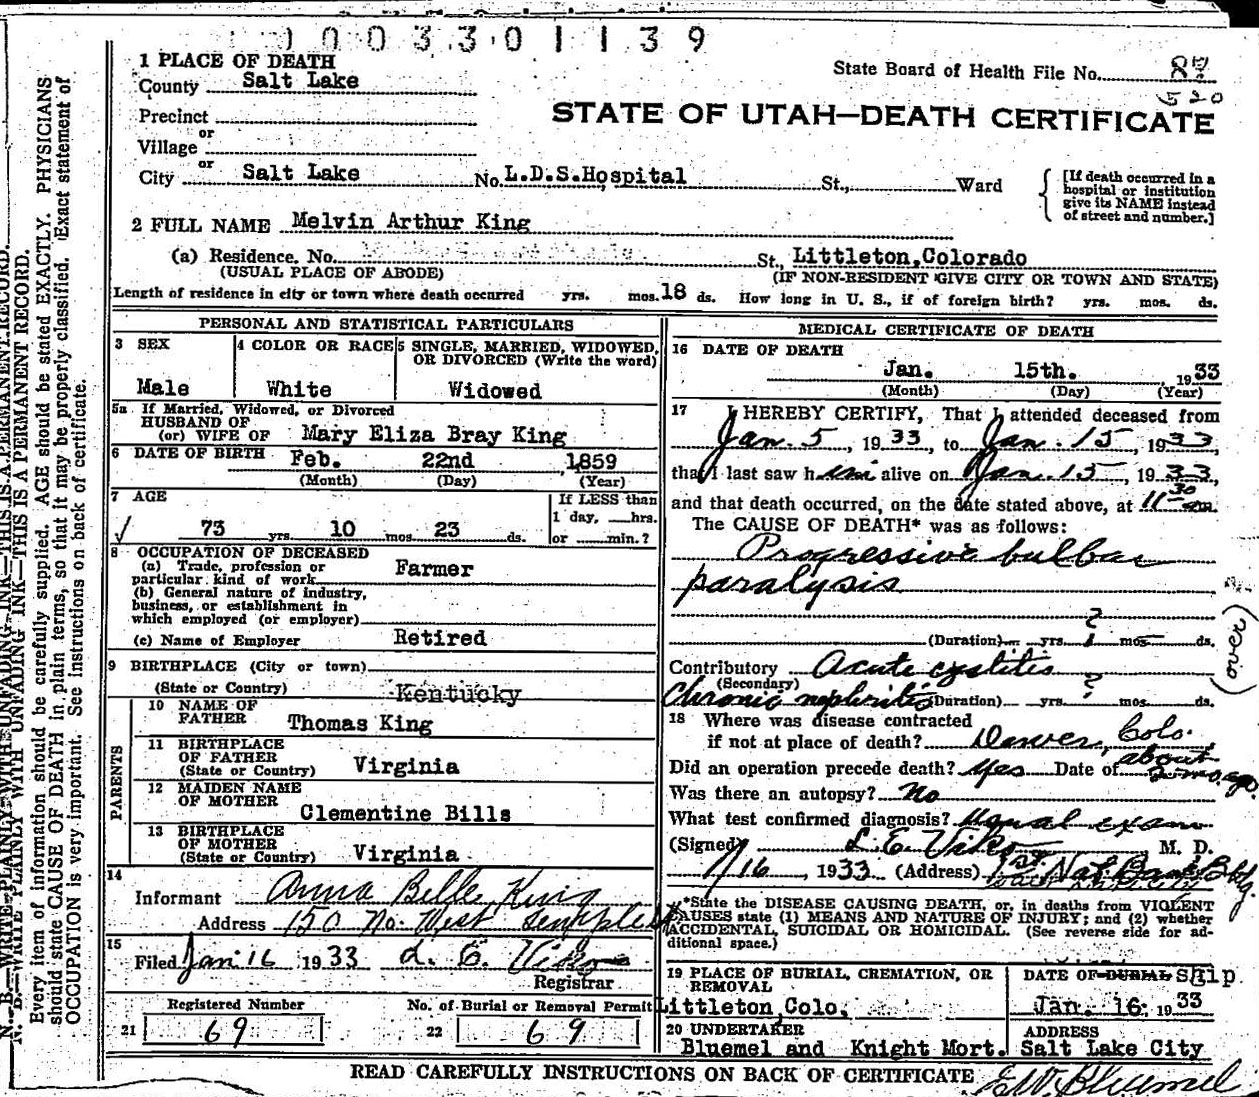 1003301139
1 PLACE OF DEATH
State Board of Health File No. 87
County Salt Lake
520
STATE OF UTAH—DEATH CERTIFICATE
Precinct
or
Village
or
City Salt Lake No. L.D.S.Hospital St., Ward
[If death occurred in a hospital or institution give its NAME instead of street and number.]
2 FULL NAME Melvin Arthur King
(a) Residence. No. St., Littleton,Colorado
(USUAL PLACE OF ABODE) (IF NON-RESIDENT GIVE CITY OR TOWN AND STATE)
Length of residence in city or town where death occurred yrs. mos. 18 ds. How long in U. S., if of foreign birth? yrs. mos. ds.
PERSONAL AND STATISTICAL PARTICULARS
3 SEX 4 COLOR OR RACE 5 SINGLE, MARRIED, WIDOWED,
OR DIVORCED (Write the word)
Male White Widowed
5a If Married, Widowed, or Divorced
HUSBAND OF
(or) WIFE OF Mary Eliza Bray King
6 DATE OF BIRTH Feb. 22nd 1859
(Month) (Day) (Year)
7 AGE If LESS than
1 day, hrs.
73 yrs. 10 mos. 23 ds. or min.?
8 OCCUPATION OF DECEASED
(a) Trade, profession or
particular kind of work Farmer
(b) General nature of industry,
business, or establishment in
which employed (or employer)
(c) Name of Employer Retired
9 BIRTHPLACE (City or town)
(State or Country) Kentucky
PARENTS
10 NAME OF
FATHER Thomas King
11 BIRTHPLACE
OF FATHER
(State or Country) Virginia
12 MAIDEN NAME
OF MOTHER Clementine Bills
13 BIRTHPLACE
OF MOTHER
(State or Country) Virginia
14
Informant Anna Belle King
Address 150 No. West Temple
15
Filed Jan 16 1933 L. E. Viko
Registrar
Registered Number No. of Burial or Removal Permit
21 69 22 69
MEDICAL CERTIFICATE OF DEATH
16 DATE OF DEATH
Jan. 15th. 1933
(Month) (Day) (Year)
17 I HEREBY CERTIFY, That I attended deceased from
Jan. 5, 1933, to Jan. 15, 1933,
that I last saw him alive on Jan. 15, 1933,
and that death occurred, on the date stated above, at 11 30 m.
The CAUSE OF DEATH* was as follows:
Progressive bulbar
paralysis
?
(Duration) yrs. mos. ds.
Contributory Acute cystitis
(Secondary) ?
Chronic nephritis (Duration) yrs. mos. ds.
(over)
18 Where was disease contracted
if not at place of death? Denver, Colo.
Did an operation precede death? Yes Date of about 2 mo. ago.
Was there an autopsy? No
What test confirmed diagnosis? Usual exam
(Signed) L. E. Viko M. D.
1/16, 1933 (Address) 1st. Nat Bank Bldg.
*State the DISEASE CAUSING DEATH, or, in deaths from VIOLENT
CAUSES state (1) MEANS AND NATURE OF INJURY; and (2) whether
ACCIDENTAL, SUICIDAL OR HOMICIDAL. (See reverse side for ad-
ditional space.)
19 PLACE OF BURIAL, CREMATION, OR
REMOVAL
DATE OF BURIAL Ship
Littleton,Colo. Jan. 16 1933
20 UNDERTAKER ADDRESS
Bluemel and Knight Mort. Salt Lake City
READ CAREFULLY INSTRUCTIONS ON BACK OF CERTIFICATE E.W. Bluemel
N. B.—WRITE PLAINLY WITH UNFADING INK—THIS IS A PERMANENT RECORD.
N. B.—WRITE PLAINLY WITH UNFADING INK—THIS IS A PERMANENT RECORD.
Every item of information should be carefully supplied. AGE should be stated EXACTLY. PHYSICIANS
should state CAUSE OF DEATH in plain terms, so that it may be properly classified. Exact statement of
OCCUPATION is very important. See instructions on back of certificate.